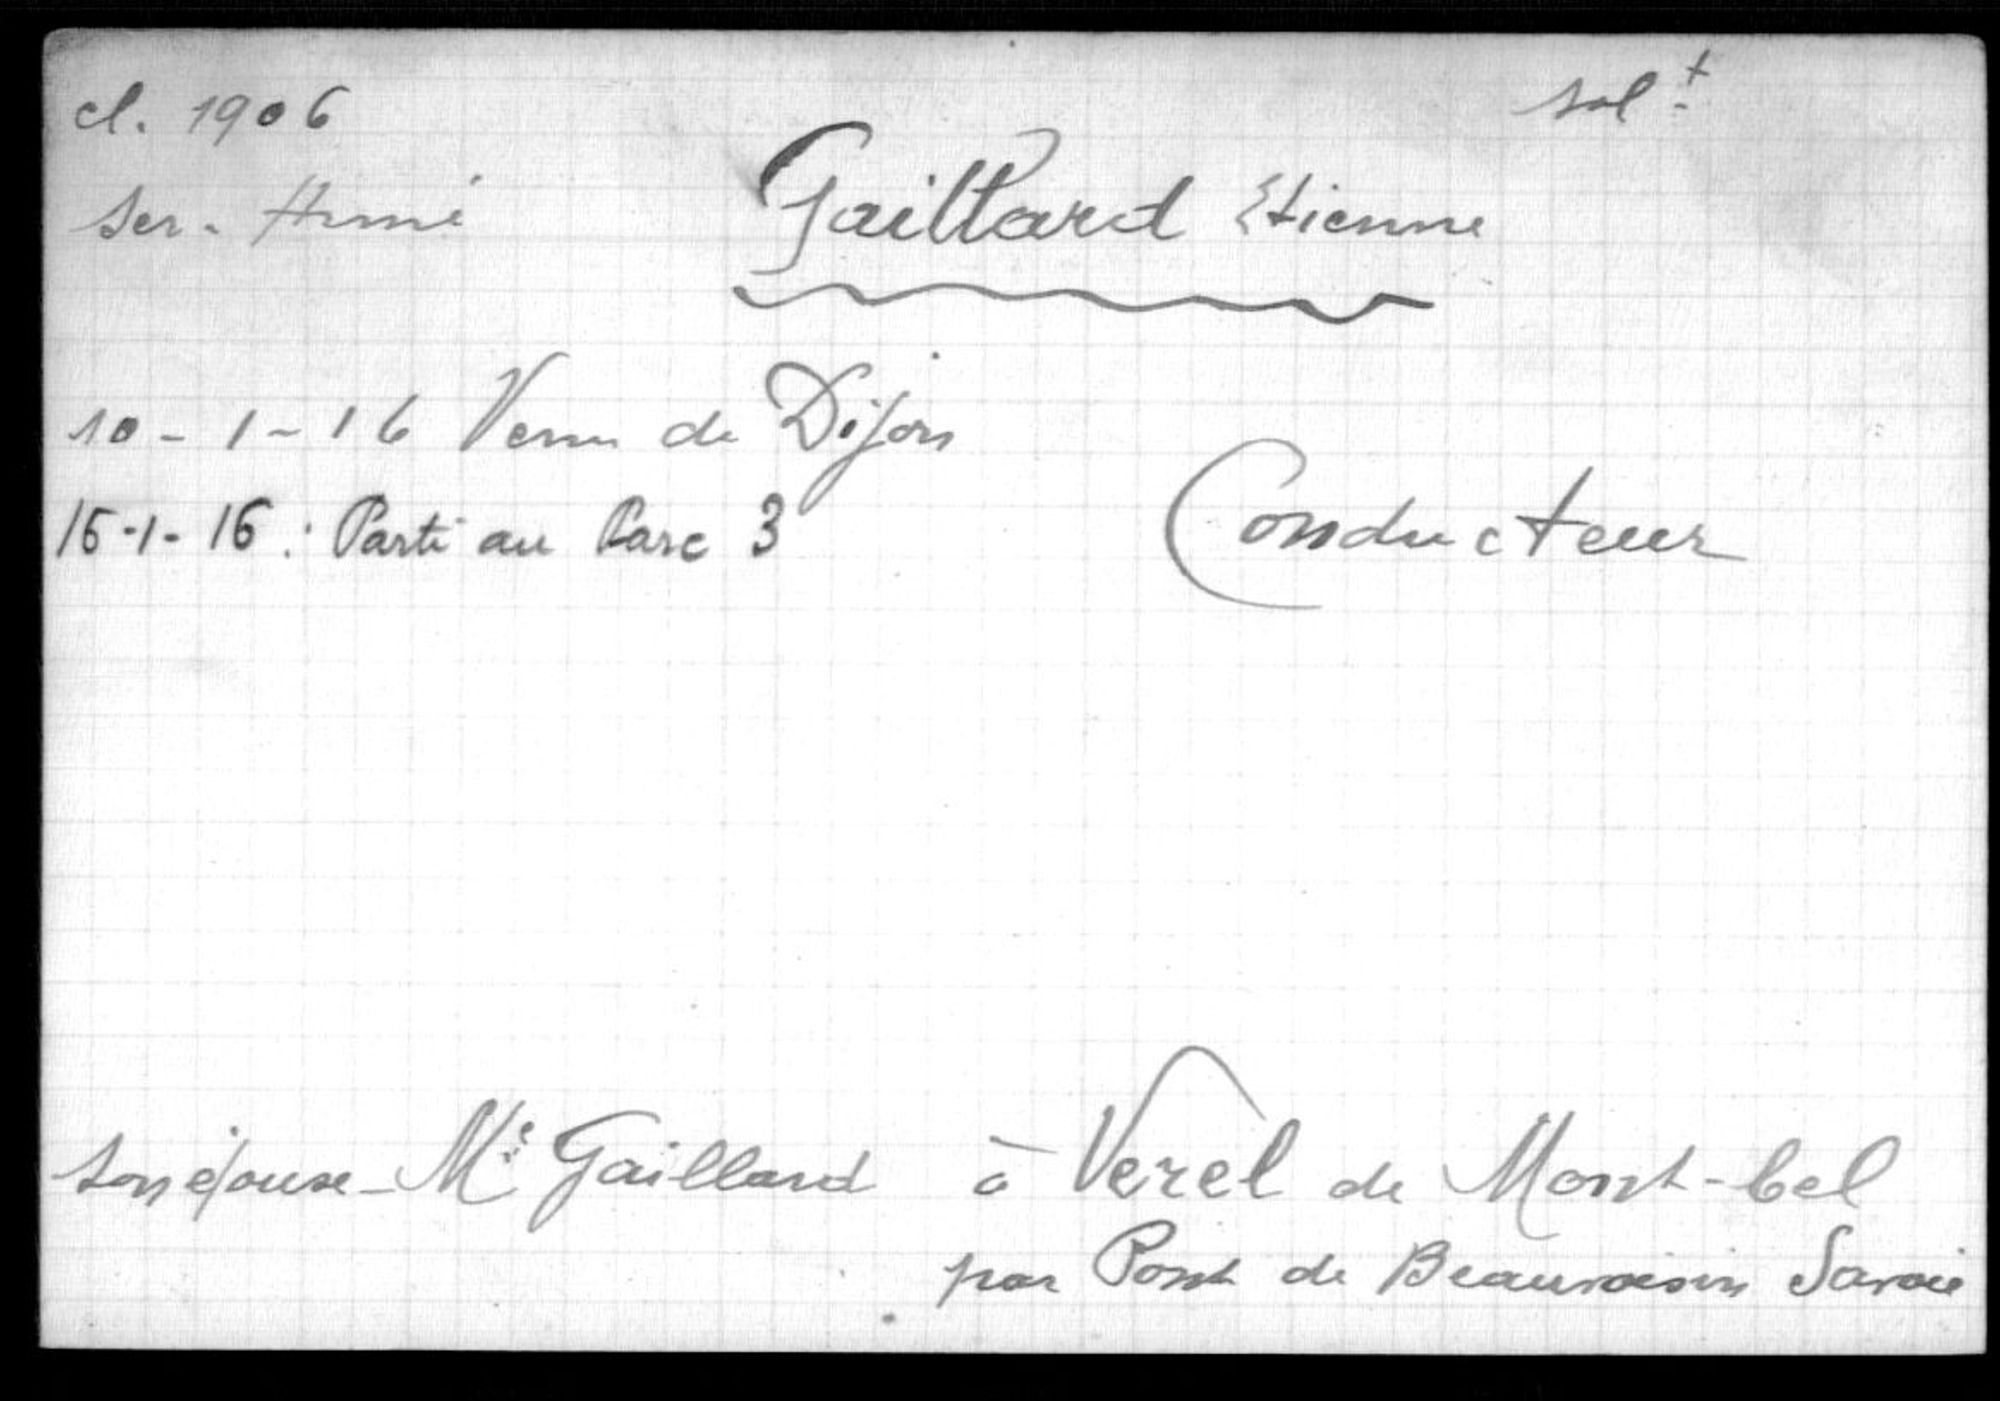 cl. 1906
sol.t
ser. Armé
Gaillard Etienne
10-1-16 Venu de Dijon
15-1-16 : Parti au Parc 3
Conducteur
son épouse - Me Gaillard à Verel de Mont-bel
par Pont de Beauvoisin Savoie